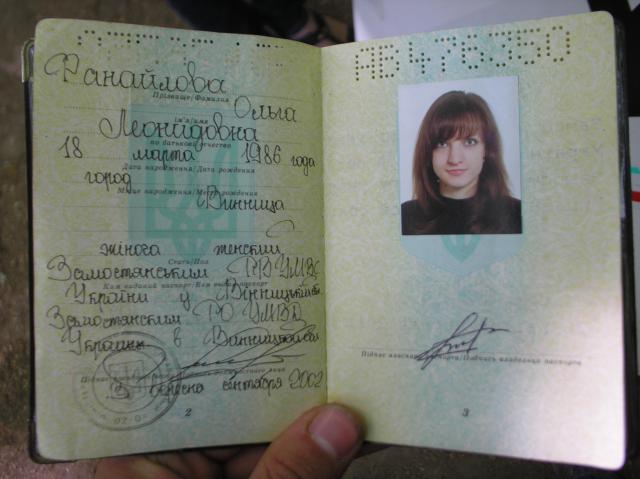 Фанайлова
Прізвище/Фамилия
Ольга
ім'я/имя
Леонидовна
по батькові/отчество
18 марта 1986 года
Дата народження/Дата рождения
город
Місце народження/Место рождения
Винница
жіноча женский
Стать/Пол
Замостянським РВ УМВС
Ким виданий паспорт/Кем выдан паспорт
України у Вінницькій
Замостянским РО УМВД
Украины в Винницкой
сентября 2002
2
АВ478350
Підпис власника паспорта/Подпись владельца паспорта
3